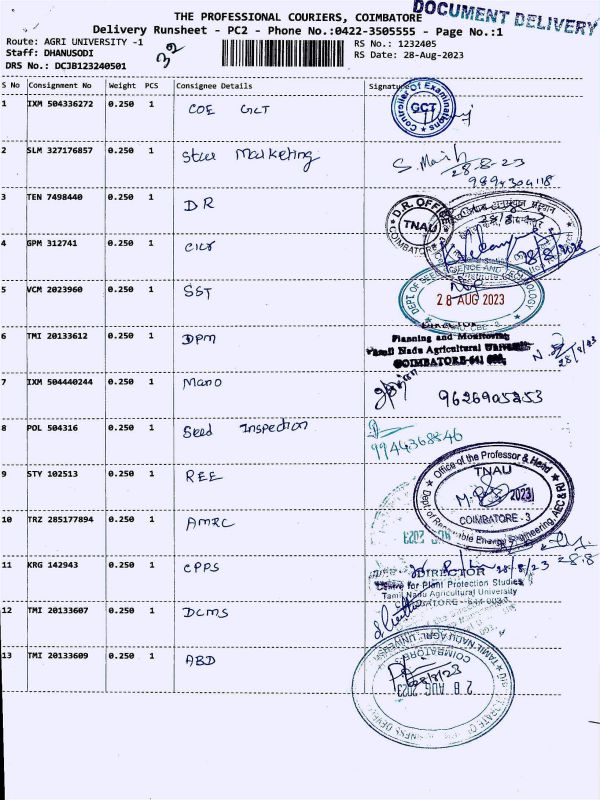 THE PROFESSIONAL COURIERS, COIMBATORE
DOCUMENT DELIVERY
Delivery Runsheet - PC2 - Phone No.:0422-3505555 - Page No.:1
Route: AGRI UNIVERSITY -1
RS No.: 1232405
Staff: DHANUSODI
32
RS Date: 28-Aug-2023
DRS No.: DCJB123240501
S No Consignment No Weight PCS Consignee Details Signature
1 IXM 504336272 0.250 1 COE GCT
Controller Of Examinations
GCT
2 SLM 327176857 0.250 1 Star Marketing
28-8-23
9894304118
3 TEN 7498440 0.250 1 DR
D.R. OFFICE
TNAU
COIMBATORE
4 GPM 312741 0.250 1 CICR
28/8/2023
5 VCM 2023960 0.250 1 SST
DEPT OF SEED SCIENCE AND TECHNOLOGY
28 AUG 2023
6 TMI 20133612 0.250 1 DPM
Planning and Monitoring
Tamil Nadu Agricultural University
COIMBATORE-641 003.
28/8/23
7 IXM 504440244 0.250 1 Mano
9626905253
8 POL 504316 0.250 1 Seed Inspection
9944368846
9 STY 102513 0.250 1 REE
Office of the Professor & Head
TNAU
2023
COIMBATORE - 3
Dept. of Renewable Energy Engineering, AEC & RI
10 TRZ 285177894 0.250 1 AMRC
28.8
11 KRG 142943 0.250 1 CPPS
28/8/23
DIRECTOR
Centre for Plant Protection Studies
Tamil Nadu Agricultural University
COIMBATORE - 641 003
12 TMI 20133607 0.250 1 DCMS
13 TMI 20133609 0.250 1 ABD
TAMIL NADU AGRI. UNIVERSITY
COIMBATORE
28 AUG 2023
28/8/23